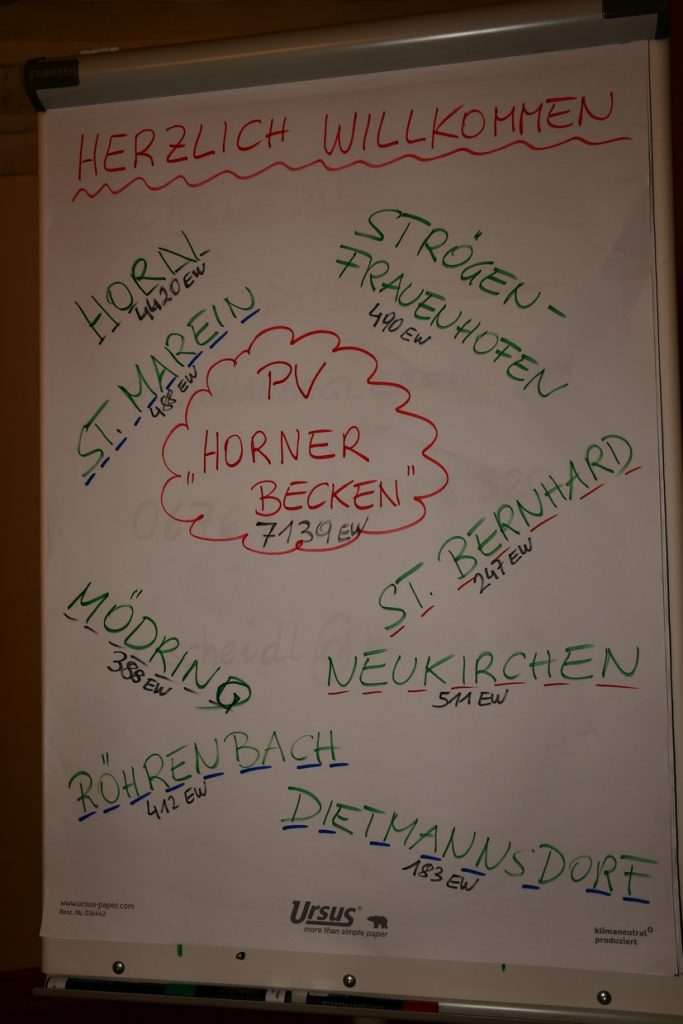 FRANKEN
HERZLICH WILLKOMMEN
HORN
4420 EW
STRÖGEN-
FRAUENHOFEN
490 EW
ST. MAREIN
488 EW
PV
„HORNER
BECKEN"
7139 EW
ST. BERNHARD
247 EW
MÖDRING
388 EW
NEUKIRCHEN
511 EW
RÖHRENBACH
412 EW
DIETMANNSDORF
183 EW
www.ursus-paper.com
Best. Nr. 036442
Ursus®
more than simple paper
klimaneutral
produziert